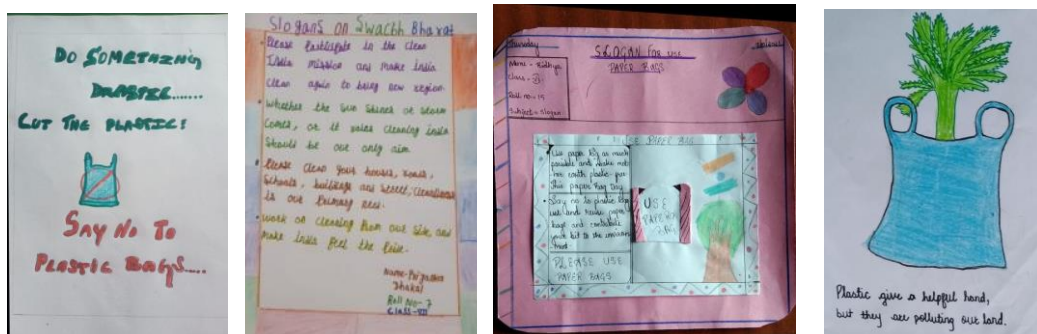 DO SOMETHING
DRASTIC......
CUT THE PLASTIC!
SAY NO TO
PLASTIC BAGS....
Slogans on Swachh Bharat
Please Participate in the clean
India mission and make india
clean again to bring new region.
Whether the sun shines or storm
comes, or it rains cleaning india
should be our only aim
Please clean your houses, roads,
Schools, buildings and street, cleanliness
is our Primary
Work on cleaning from our side and
make India feel the
Name-Priyanka
Dhakal
Roll No-7
Class-VII
Thursday
SLOGAN For use
PAPER BAGS
Name - Ridhya
Class - 3
Roll no - 19
Subject - slogan
USE PAPER BAG
Use paper bag as much
possible and make mot
her earth plastic free
This paper Bag Day
Say no to plastic bag
use and raise paper
bags and contribute
your bit to the environ
ment
PLEASE USE
PAPER BAGS
USE
PAPER
BAG
Plastic give a helpful hand,
but they are polluting our land.